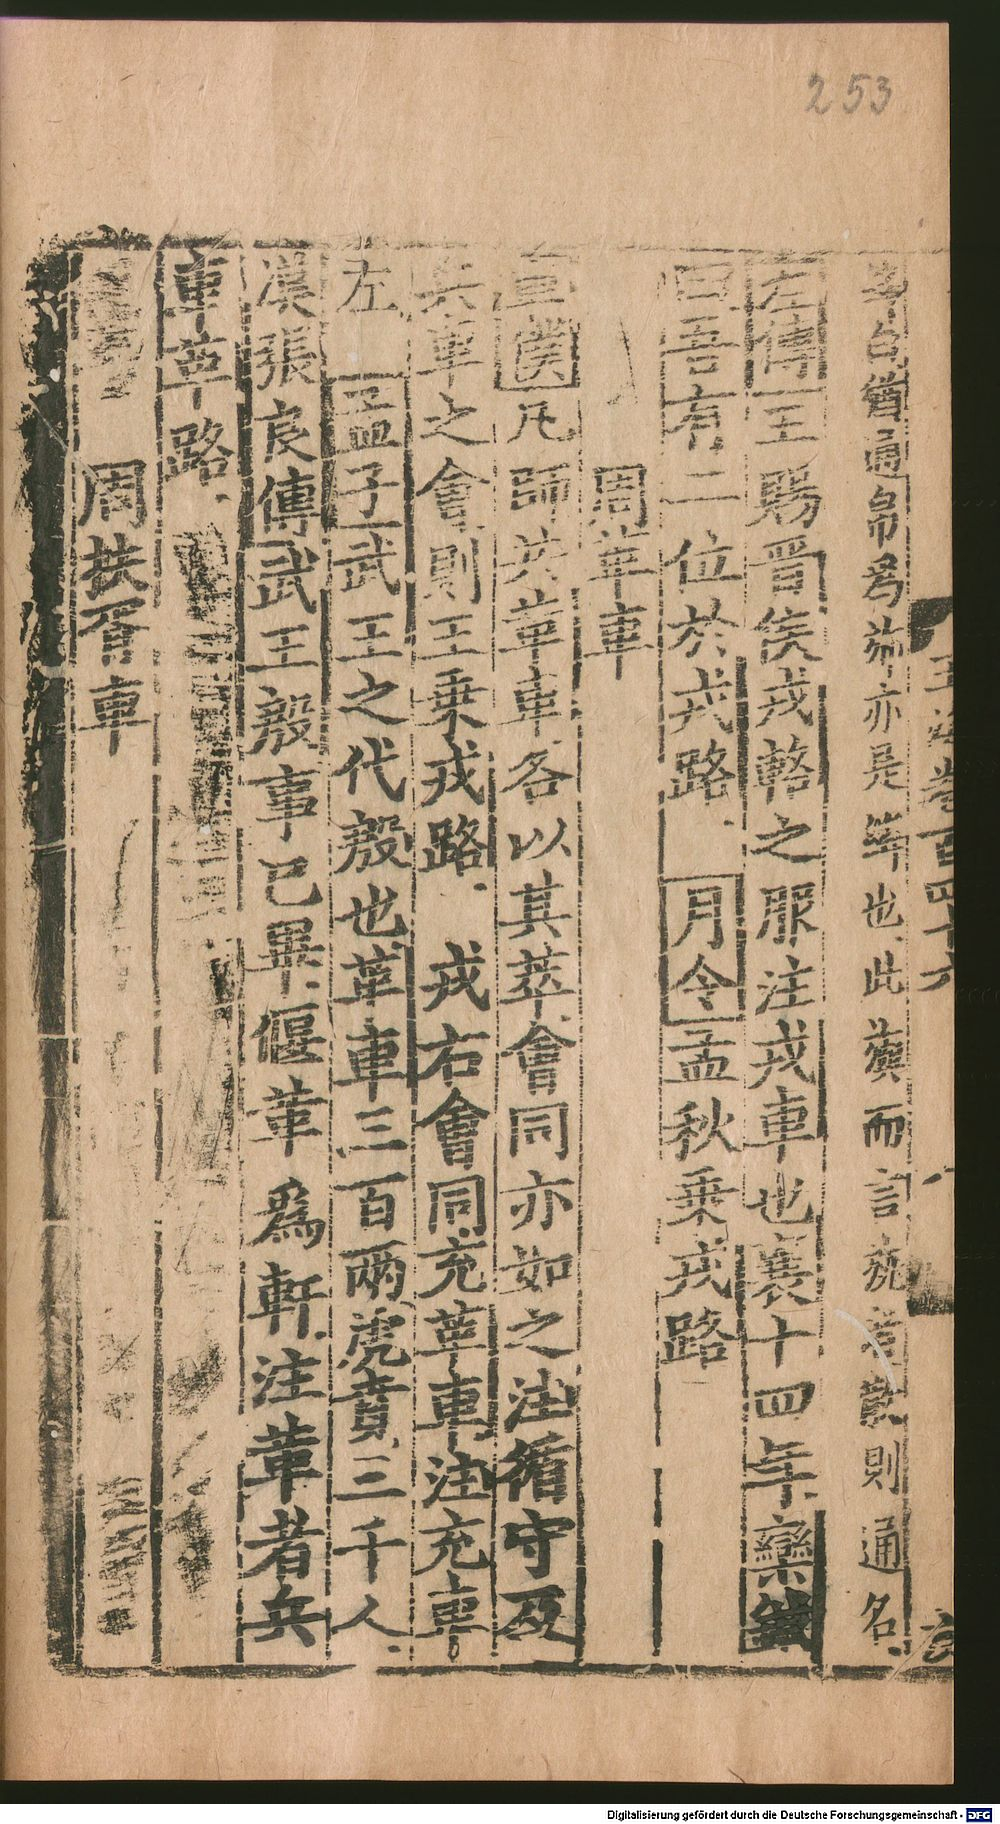 253
皆通帛爲旃亦是等也此藂而言旒若散則通名
左傳王賜晉侯戎輅之服注戎車也襄十四年欒鍼
曰吾有二位於戎路 月令孟秋乗戎路
周革車
車僕凡師共革車各以其萃會同亦如之注循守及
兵車之會則王乗戎路 戎右會同充革車注充車
左 孟子武王之代殷也革車三百兩虎賁三千人
漢張良傳武王殷事已畢偃革爲軒注革者兵
車革路
周扶胥車
卷百四十六
Digitalisierung gefördert durch die Deutsche Forschungsgemeinschaft - DFG